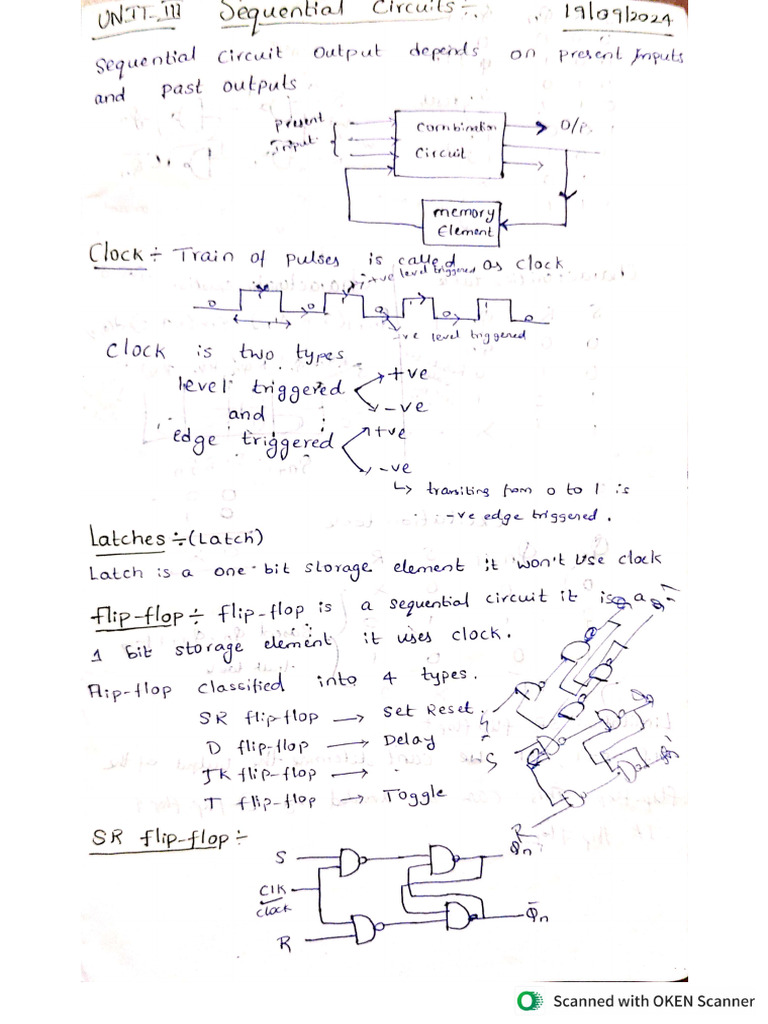 UNIT-III Sequential Circuits÷ 19/09/2024
Sequential Circuit output depends on present inputs
and past outputs
present
Input
Combination
Circuit
O/P.
memory
Element
Clock÷ Train of pulses is called as clock
+ve level triggered
0 0 0 0 0
-ve level triggered
Clock is two types
level triggered +ve
-ve
and
edge triggered +ve
-ve
↳ transiting from 0 to 1 is
-ve edge triggered.
Latches÷(Latch)
Latch is a one-bit storage element it won't use clock
flip-flop÷ flip-flop is a sequential circuit it is a
1 bit storage element it uses clock.
Flip-flop classified into 4 types.
SR flip-flop → Set Reset.
D flip-flop → Delay
JK flip-flop →
T flip-flop → Toggle
S
R
SR flip-flop÷
S
Clk
clock
R
Qn
Q̄n
Scanned with OKEN Scanner